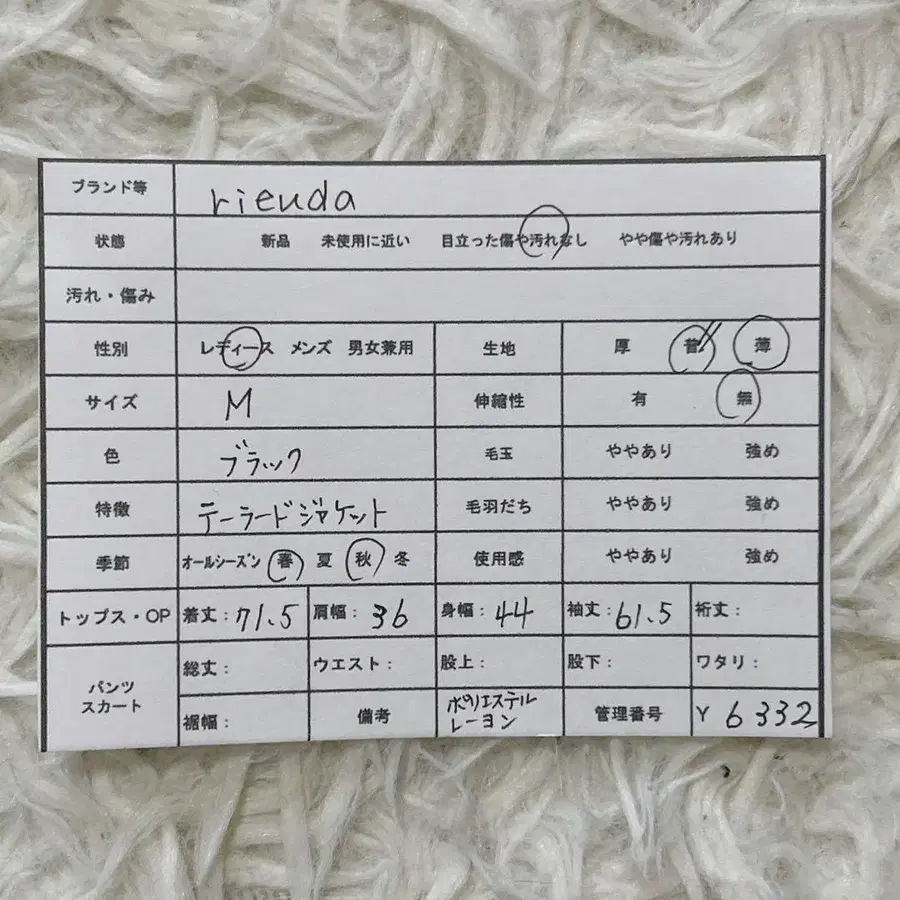 ブランド等 rienda
状態 新品 未使用に近い 目立った傷や汚れなし やや傷や汚れあり
汚れ・傷み
性別 レディース メンズ 男女兼用 生地 厚 普 薄
サイズ M 伸縮性 有 無
色 ブラック 毛玉 ややあり 強め
特徴 テーラードジャケット 毛羽だち ややあり 強め
季節 オールシーズン 春 夏 秋 冬 使用感 ややあり 強め
トップス・OP 着丈：71.5 肩幅：36 身幅：44 袖丈：61.5 裄丈：
パンツ スカート 総丈： ウエスト： 股上： 股下： ワタリ：
裾幅： 備考 ポリエステル レーヨン 管理番号 Y 6332